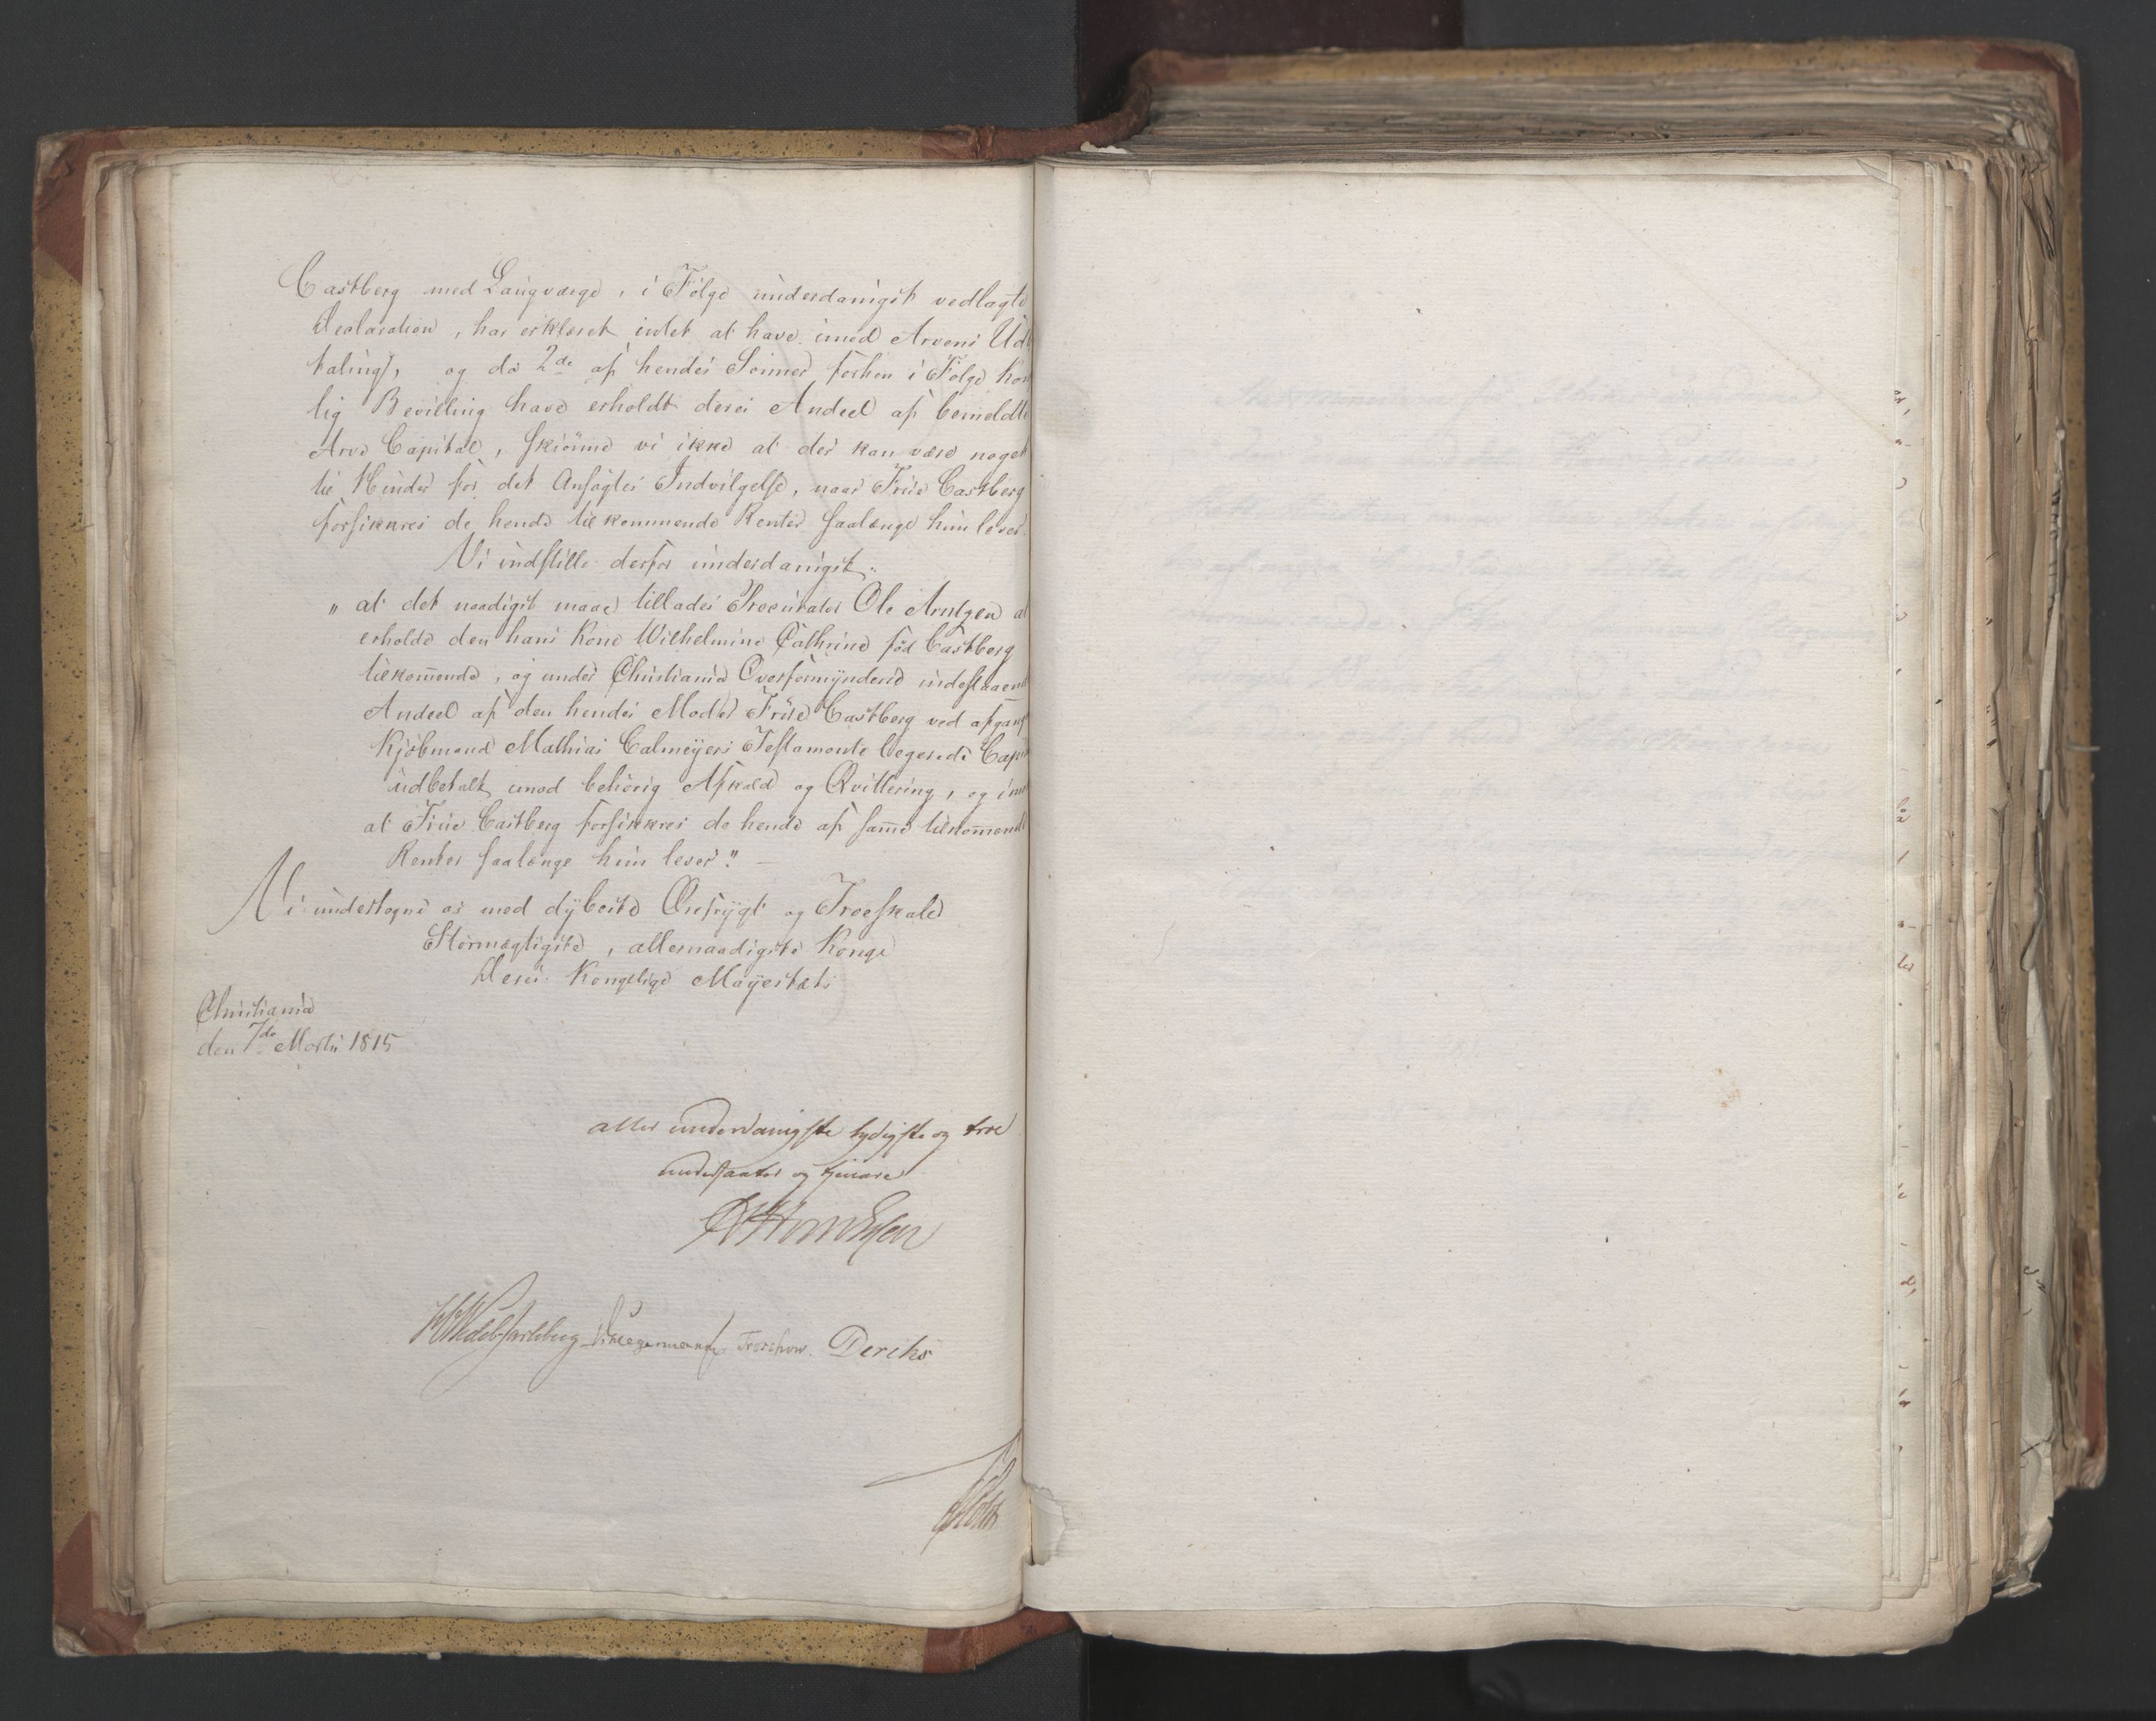 Castberg med Laugværge, i Følge underdanigst vedlagte
Declaration, har erklæret intet at have imod Arvens Ud-
taling, og da 2de af hendes Sønner forhen i Følge kon
lig Bevilling have erholdt deres Andeel af bemeldte
Arve Capital, skiønne vi ikke at der kan være noget
til Hinder for det Ansøgtes Indvilgelse, naar Frue Castberg
forsikkres de hende tilkommende Renter saalænge hun lever.
Vi indstille derfor underdanigst:
" at det naadigst maae tillades Procurator Ole Arntzen at
erholde den hans Kone Wilhelmine Cathrine fød Castberg
tilkom̅ende, og under Christiania Overformynderie indestaaende
Andeel af den hendes Moder Frue Castberg ved afgangne
Kjøbmand Mathias Calmeyers Testamente legerede Capit
udbetalt imod behørig Afkald og Qvittering, og imod
at Frue Castberg forsikkres de hende af sam̅e tilkom̅ende
Renter saalænge hun lever." —
Vi undertegne os med dybeste Ærefrygt og Troeskab
Stormægtigste, allernaadigste Konge
Deres Kongelige Mayestæts
Christiania
den 7de Martii 1815
aller underdanigste lydigste og troe
undersaatter og tjenere
Wedel Jarlsberg Treschow. Diriks